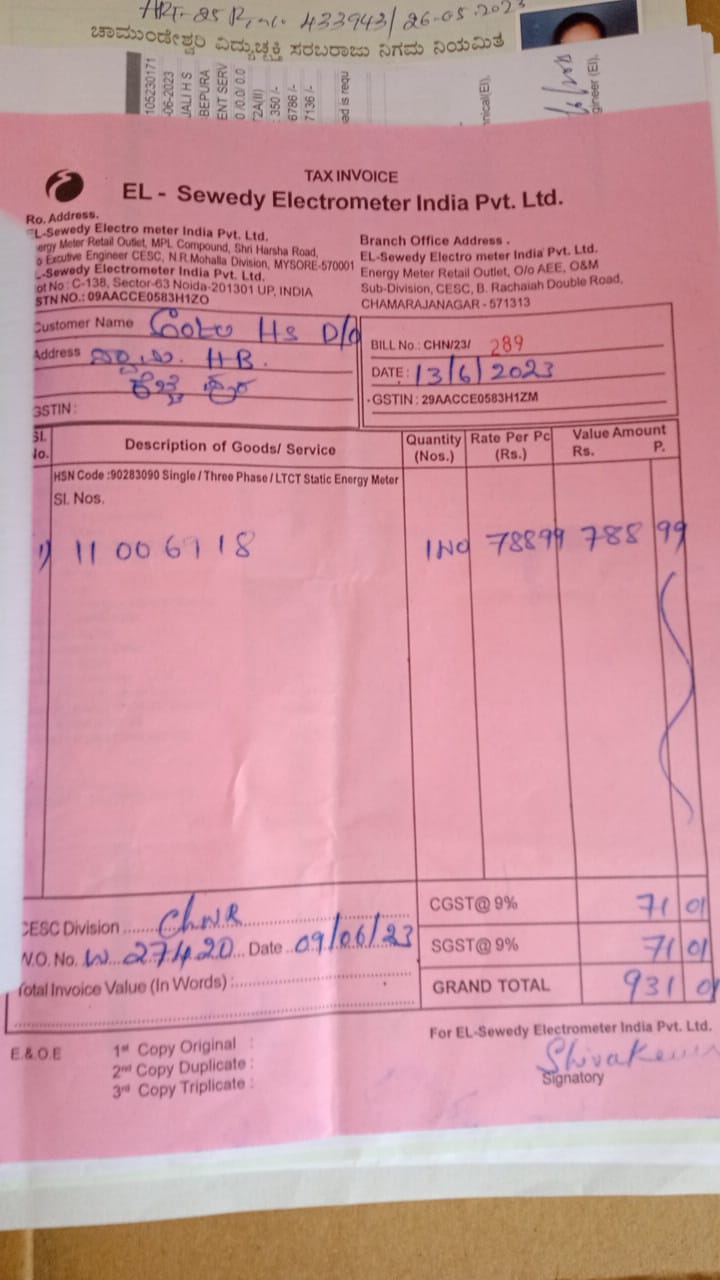 433943/26-05-2023
ಚಾಮುಂಡೇಶ್ವರಿ ವಿದ್ಯುಚ್ಛಕ್ತಿ ಸರಬರಾಜು ನಿಗಮ ನಿಯಮಿತ
105230171
-06-2023
JALI H S
BEPURA
ENT SERV
0 /0.0/ 0.0
T2A(II)
: 350 /-
6786 /-
7136 /-
ad is requ
nical(EI),
gineer (EI),
TAX INVOICE
EL - Sewedy Electrometer India Pvt. Ltd.
Ro. Address.
EL-Sewedy Electro meter India Pvt. Ltd,
ergy Meter Retail Outlet, MPL Compound, Shri Harsha Road,
o Excutive Engineer CESC, N.R.Mohalla Division, MYSORE-570001
L-Sewedy Electrometer India Pvt. Ltd.
ot No : C-138, Sector-63 Noida-201301 UP, INDIA
STN NO.: 09AACCE0583H1ZO
Branch Office Address .
EL-Sewedy Electro meter India Pvt. Ltd.
Energy Meter Retail Outlet, O/o AEE, O&M
Sub-Division, CESC, B. Rachaiah Double Road,
CHAMARAJANAGAR - 571313
Customer Name HS D/o
Address HB.
GSTIN :
BILL No.: CHN/23/ 289
DATE : 13/6/2023
GSTIN : 29AACCE0583H1ZM
Sl. No. Description of Goods/ Service Quantity (Nos.) Rate Per Pc (Rs.) Value Amount Rs. P.
HSN Code :90283090 Single / Three Phase / LTCT Static Energy Meter
Sl. Nos.
1) 11006718 1NO 78899 788 99
CGST@ 9% 71 01
CESC Division ChNR
SGST@ 9% 71 01
W.O. No. W 27420 Date 09/06/23
GRAND TOTAL 931 01
Total Invoice Value (In Words) :
E.& O.E
1st Copy Original :
2nd Copy Duplicate :
3rd Copy Triplicate :
For EL-Sewedy Electrometer India Pvt. Ltd.
Signatory